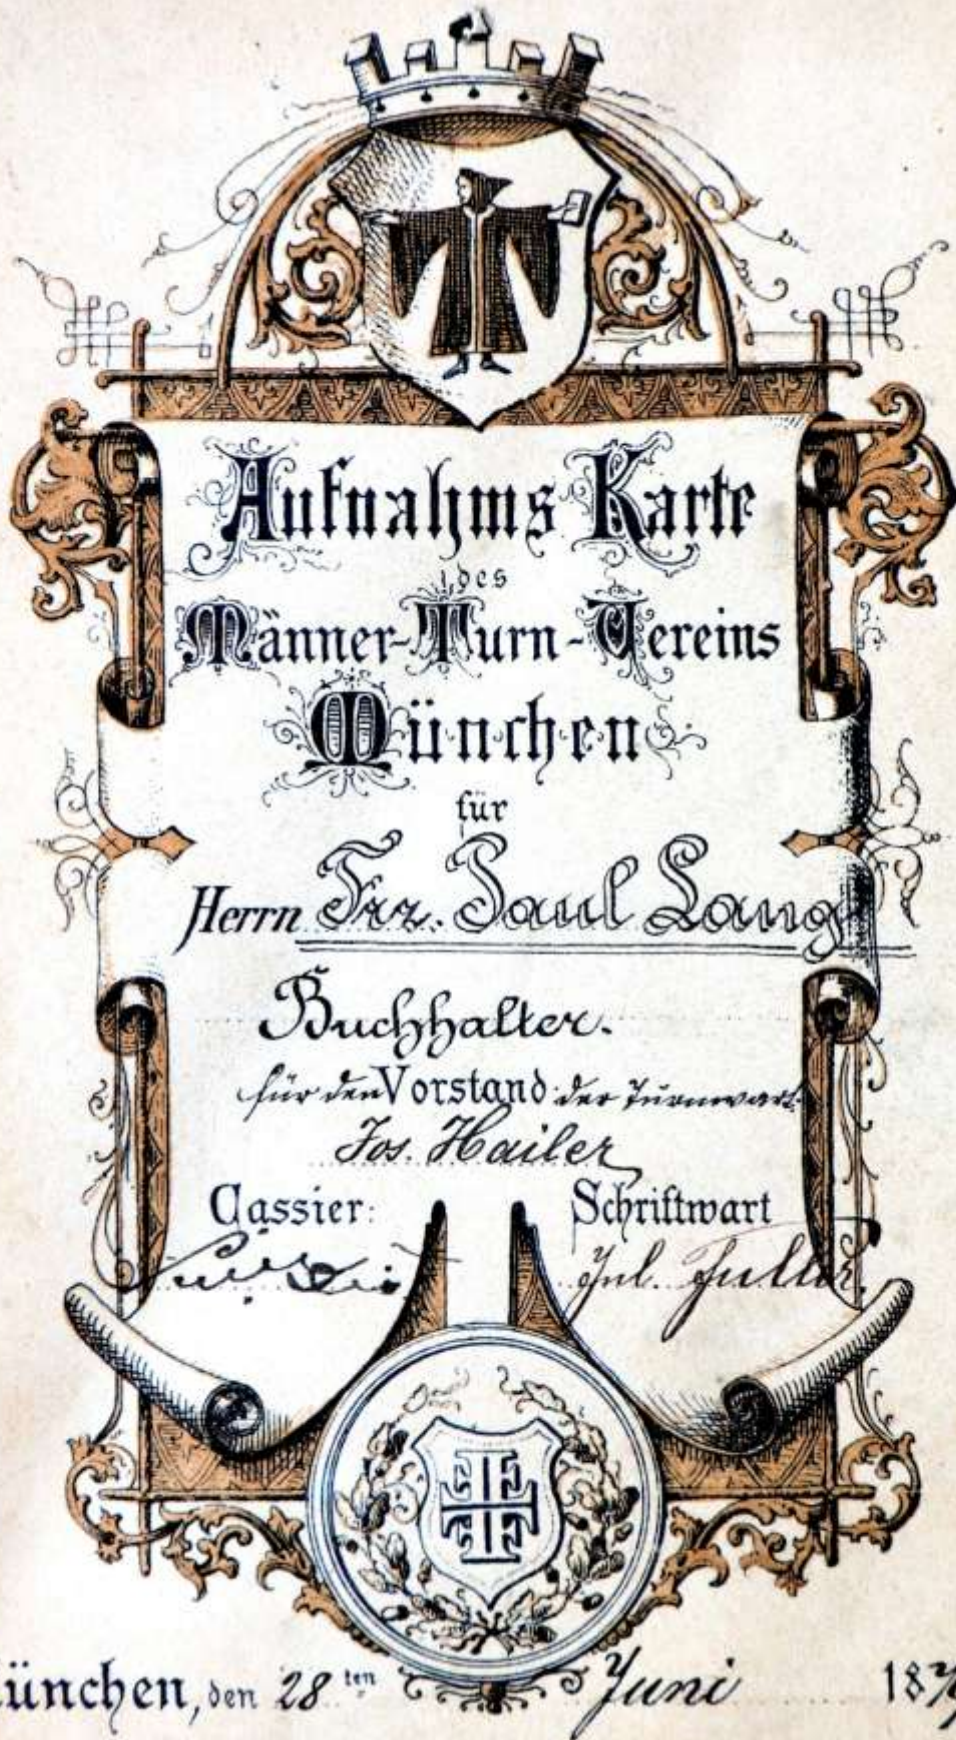 Aufnahms Karte
des
Männer-Turn-Vereins
München
für
Herrn Frz. Paul Lang
Buchhalter.
für den Vorstand der Turnwart
Jos. Hailer
Cassier: Schriftwart
Jul.
München, den 28ten Juni 187